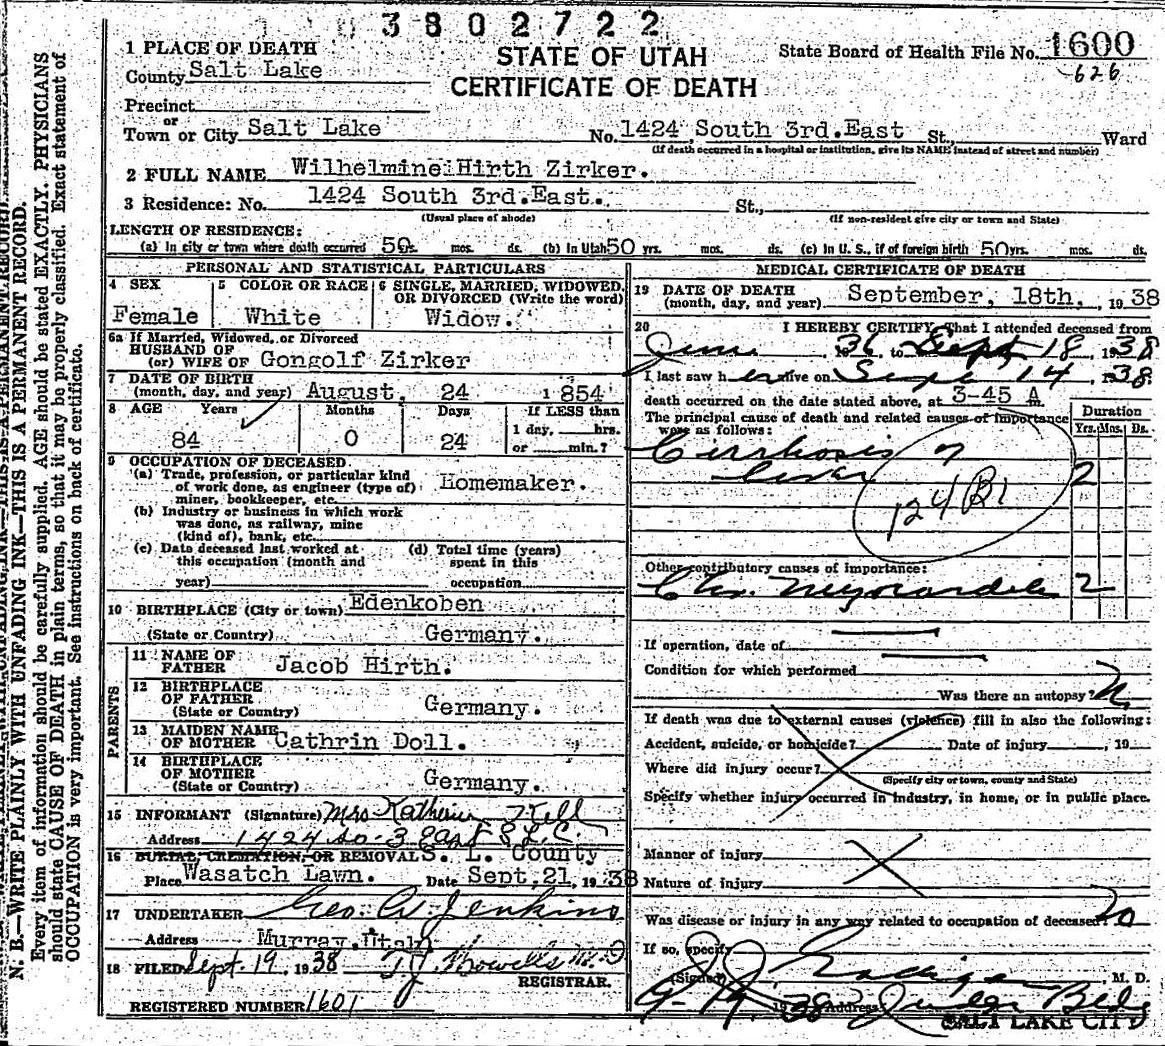 3802722
1 PLACE OF DEATH
County Salt Lake
STATE OF UTAH
CERTIFICATE OF DEATH
State Board of Health File No. 1600
626
Precinct
or
Town or City Salt Lake No. 1424 South 3rd.East St., Ward
(If death occurred in a hospital or institution, give its NAME instead of street and number)
2 FULL NAME Wilhelmine Hirth Zirker.
3 Residence: No. 1424 South 3rd.East. St.,
(Usual place of abode) (If non-resident give city or town and State)
LENGTH OF RESIDENCE:
(a) In city or town where death occurred 50 yrs. mos. ds. (b) In Utah 50 yrs. mos. ds. (c) In U. S., if of foreign birth 50 yrs. mos. ds.
PERSONAL AND STATISTICAL PARTICULARS
4 SEX 5 COLOR OR RACE 6 SINGLE, MARRIED, WIDOWED, OR DIVORCED (Write the word)
Female White Widow.
6a If Married, Widowed, or Divorced
HUSBAND OF
(or) WIFE OF Gongolf Zirker
7 DATE OF BIRTH
(month, day, and year) August, 24 1854
8 AGE Years Months Days If LESS than
1 day, hrs.
84 0 24 or min.?
9 OCCUPATION OF DECEASED
(a) Trade, profession, or particular kind
of work done, as engineer (type of)
miner, bookkeeper, etc. Homemaker.
(b) Industry or business in which work
was done, as railway, mine
(kind of), bank, etc.
(c) Date deceased last worked at (d) Total time (years)
this occupation (month and spent in this
year) occupation
10 BIRTHPLACE (City or town) Edenkoben
(State or Country) Germany.
PARENTS
11 NAME OF
FATHER Jacob Hirth.
12 BIRTHPLACE
OF FATHER
(State or Country) Germany.
13 MAIDEN NAME
OF MOTHER Cathrin Doll.
14 BIRTHPLACE
OF MOTHER
(State or Country) Germany.
15 INFORMANT (Signature) Mrs Katherine Kell
Address 1424 So-3 East S.L.C.
16 BURIAL, CREMATION, OR REMOVAL S. L. County
Place Wasatch Lawn. Date Sept,21, 1938
17 UNDERTAKER Geo. W. Jenkins
Address Murray,Utah
18 FILED Sept. 19 1938 T.J. Howells M.D
REGISTRAR.
REGISTERED NUMBER 1601
MEDICAL CERTIFICATE OF DEATH
19 DATE OF DEATH
(month, day, and year) September, 18th, 1938
20 I HEREBY CERTIFY, That I attended deceased from
June, 1936 to Sept 18 1938
I last saw her alive on Sept 14, 1938
death occurred on the date stated above, at 3-45 A m.
The principal cause of death and related causes of importance
were as follows:
Duration
Yrs. Mos. Ds.
Cirrhosis of
Liver 2
124B1
Other contributory causes of importance:
Chr. Myocarditis 2
If operation, date of
Condition for which performed
Was there an autopsy?
If death was due to external causes (violence) fill in also the following:
Accident, suicide, or homicide? Date of injury , 19
Where did injury occur?
(Specify city or town, county and State)
Specify whether injury occurred in industry, in home, or in public place.
Manner of injury
Nature of injury
Was disease or injury in any way related to occupation of deceased? No
If so, specify
(Signed) , M. D.
1938 Address Judge Bldg
SALT LAKE CITY
N. B.—WRITE PLAINLY WITH UNFADING INK—THIS IS A PERMANENT RECORD.
Every item of information should be carefully supplied. AGE should be stated EXACTLY. PHYSICIANS
should state CAUSE OF DEATH in plain terms, so that it may be properly classified. Exact statement of
OCCUPATION is very important. See instructions on back of certificate.